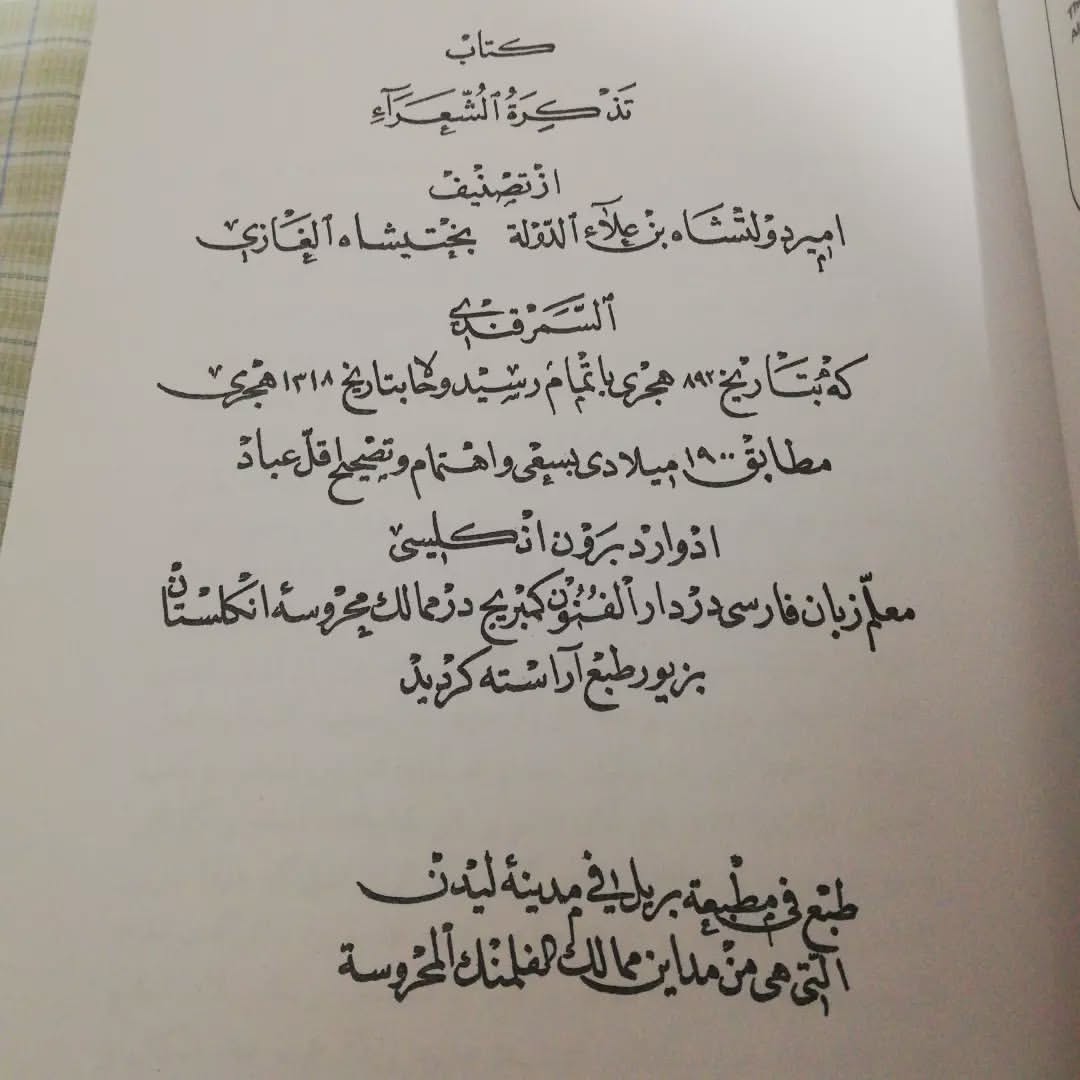 كتاب
تَذْكِرَةُ ٱلشُّعَرَآءِ
از تصنیف
امیر دولتشاه بن علآء الدّولة بختیشاه الغازی
ٱلسَّمَرقندی
که بتاریخ ۸۹۲ هجری باتمام رسید وحالا بتاریخ ۱۳۱۸ هجری
مطابق ۱۹۰۰ میلادی بسعی و اهتمام و تصحیح اقلّ عباد
ادوارد برون انکلیسی
معلّم زبان فارسی در دار ٱلفُنُون کمبریج در ممالك محروسهٔ انکلستان
بزیور طبع آراسته کردید
طبع في مطبعة بریل في مدینة لیدن
الّتی هی من مداین ممالك الفلمنك ٱلمحروسة